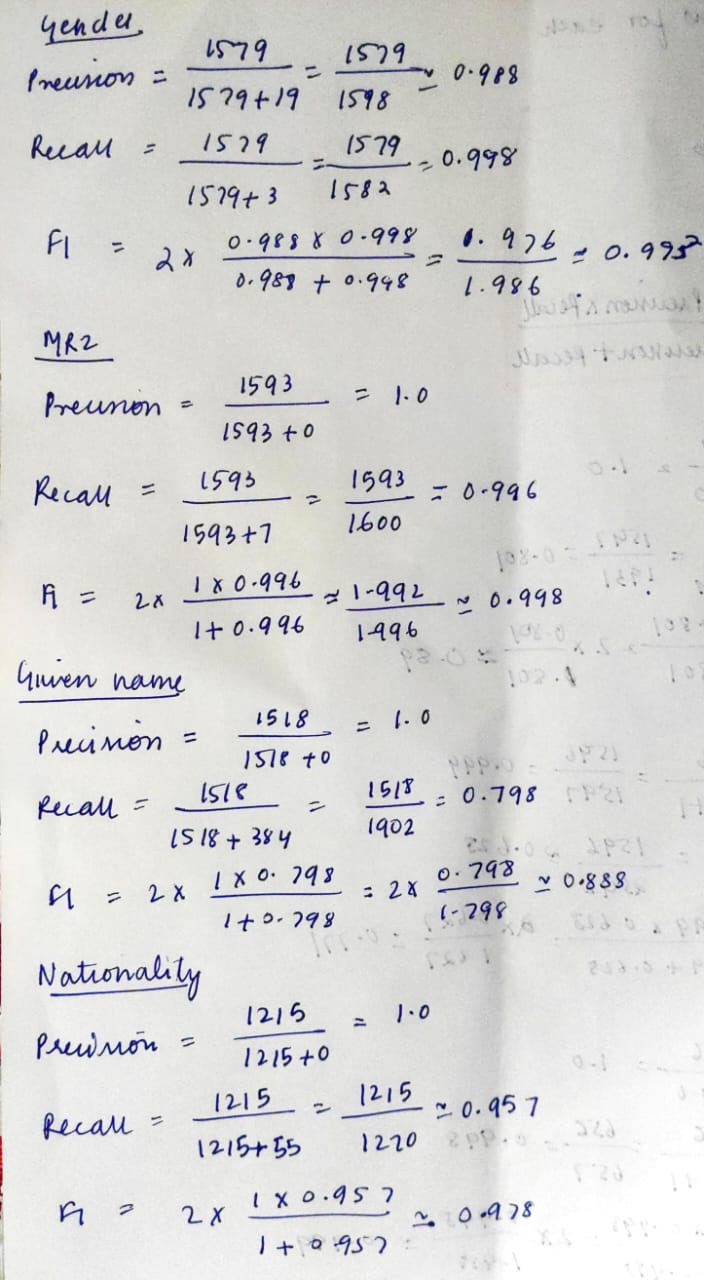 Gender
Precision = 1579 / 1579+19 = 1579 / 1598 ≃ 0.988
Recall = 1579 / 1579+3 = 1579 / 1582 ≃ 0.998
F1 = 2x 0.988 x 0.998 / 0.988 + 0.998 = 1.976 / 1.986 ≃ 0.995
MR2
Precision = 1593 / 1593+0 = 1.0
Recall = 1593 / 1593+7 = 1593 / 1600 = 0.996
F1 = 2x 1 x 0.996 / 1+0.996 ≃ 1.992 / 1.996 ≃ 0.998
Given name
Precision = 1518 / 1518+0 = 1.0
Recall = 1518 / 1518+384 = 1518 / 1902 = 0.798
F1 = 2x 1 x 0.798 / 1+0.798 = 2x 0.798 / 1.798 ≃ 0.888
Nationality
Precision = 1215 / 1215+0 = 1.0
Recall = 1215 / 1215+55 = 1215 / 1270 ≃ 0.957
F1 = 2x 1 x 0.957 / 1+0.957 ≃ 0.978